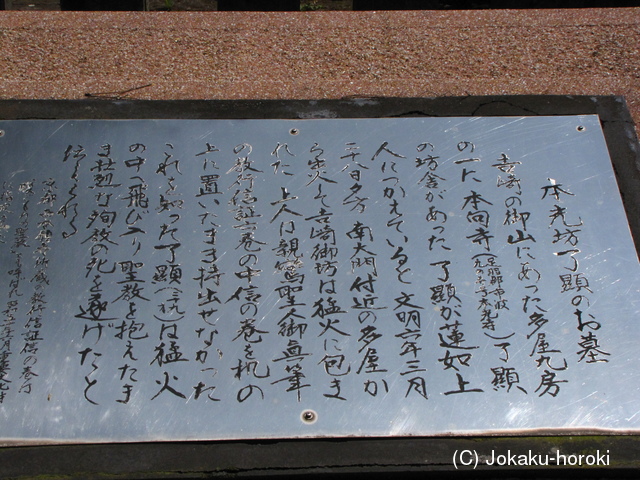 本光坊了顕のお墓
吉崎の御山にあった多屋九房
の一に本向寺（足羽郡 本光寺）了顕
の坊舎があった 了顕が蓮如上
人につかえていると 文明六年三月
二十八日夕方 南大門付近の多屋か
ら出火して吉崎御坊は猛火に包ま
れた 上人は親鸞聖人御真筆
の教行信証六巻の中信の巻を机の
上に置いたまま持出せなかった
これを知った了顕（ ）は猛火
の中に飛び入り聖教を抱えたま
ま壮烈な殉教の死を遂げたと
伝えられる
(C) Jokaku-horoki